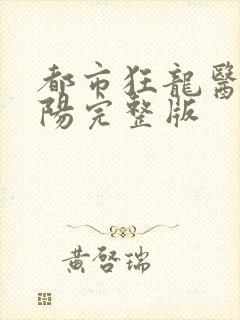 都市狂龍醫
陽完整版
黃啓瑞